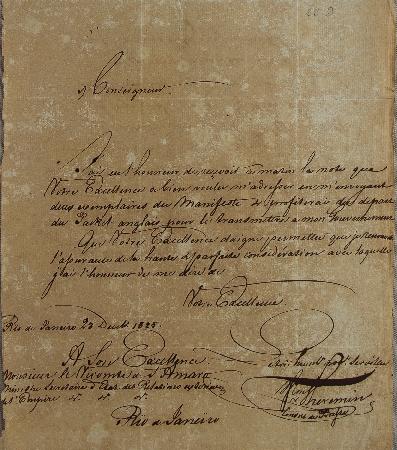 Monseigneur
J'ai eu l'honneur de recevoir ce matin la note que
Votre Excellence a bien voulu m'adresser en m'envoyant
deux exemplaires du Manifeste Je profiterai du départ
du Paket anglais pour le transmettre a mon Gouvernement
Que Votre Excellence daigne permettre que je
l'assurance de la haute & parfaite considération avec laquelle
j'ai l'honneur de me dire de
Votre Excellence
Rio de Janeiro 23 Decbr 1825.
A Son Excellence
Monsieur le Vicomte de St Amaro
Ministre Secretaire d'Etat des Relations
de l'Empire
Rio de Janeiro
Theremin
Consul de Prusse